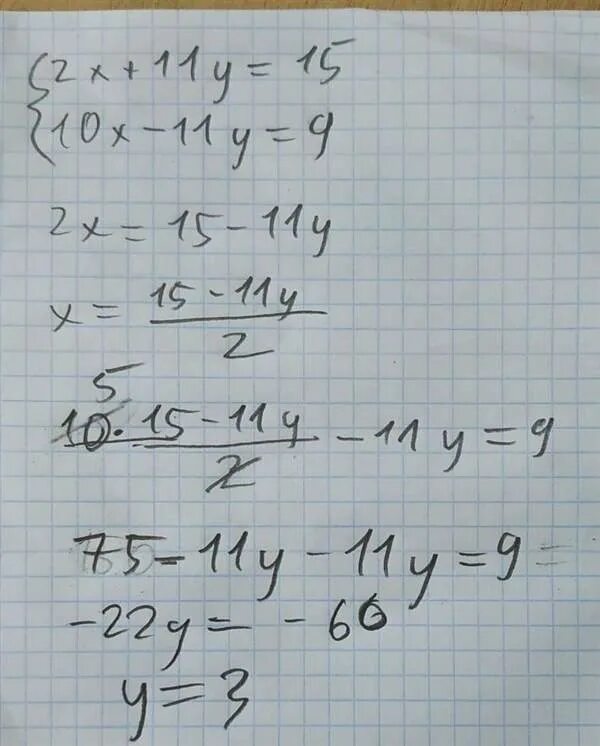 {2x+11y=15
{10x-11y=9
2x=15-11y
x=(15-11y)/2
5
10·15-11y/2-11y=9
75-11y-11y=9=
-22y=-66
y=3